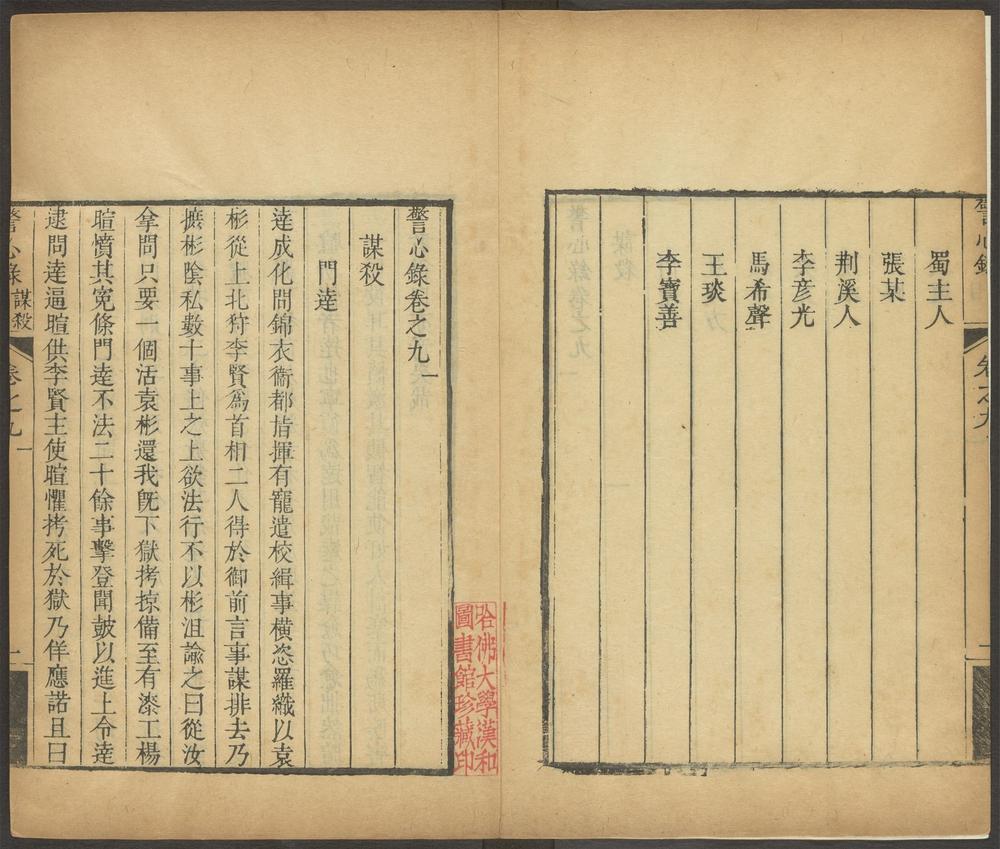 警心錄
卷之九
蜀主人
張某
荆溪人
李彦光
馬希聲
王琰
李寶善
哈佛大學漢和
圖書館珍藏印
警心錄卷之九
謀殺
門達
達成化間錦衣衞都指揮有寵遣校緝事橫恣羅織以袁
彬從上北狩李賢爲首相二人得於御前言事謀排去乃
摭彬陰私數十事上之上欲法行不以彬沮諭之曰從汝
拿問只要一個活袁彬還我旣下獄拷掠備至有漆工楊
暄憤其寃條門達不法二十餘事擊登聞皷以進上令達
逮問達逼暄供李賢主使暄懼拷死於獄乃佯應諾且曰
警心錄
謀殺
卷之九
一